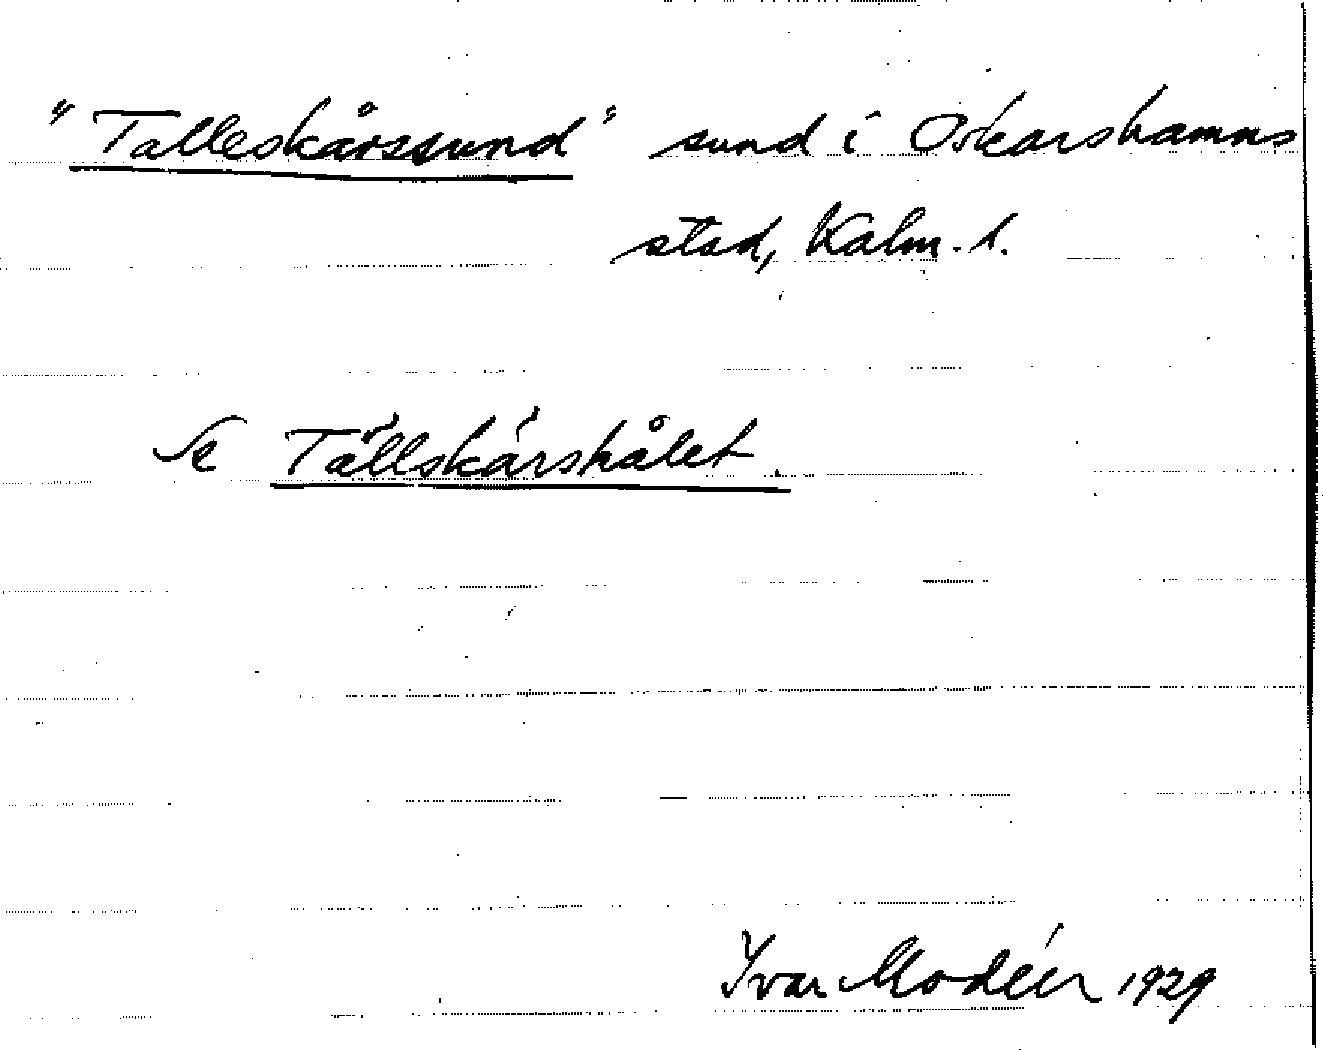 "Talleskårssund" sund i Oskarshamns
stad, Kalm. l.
Se Tällskärshålet
Ivar Modéer 1929